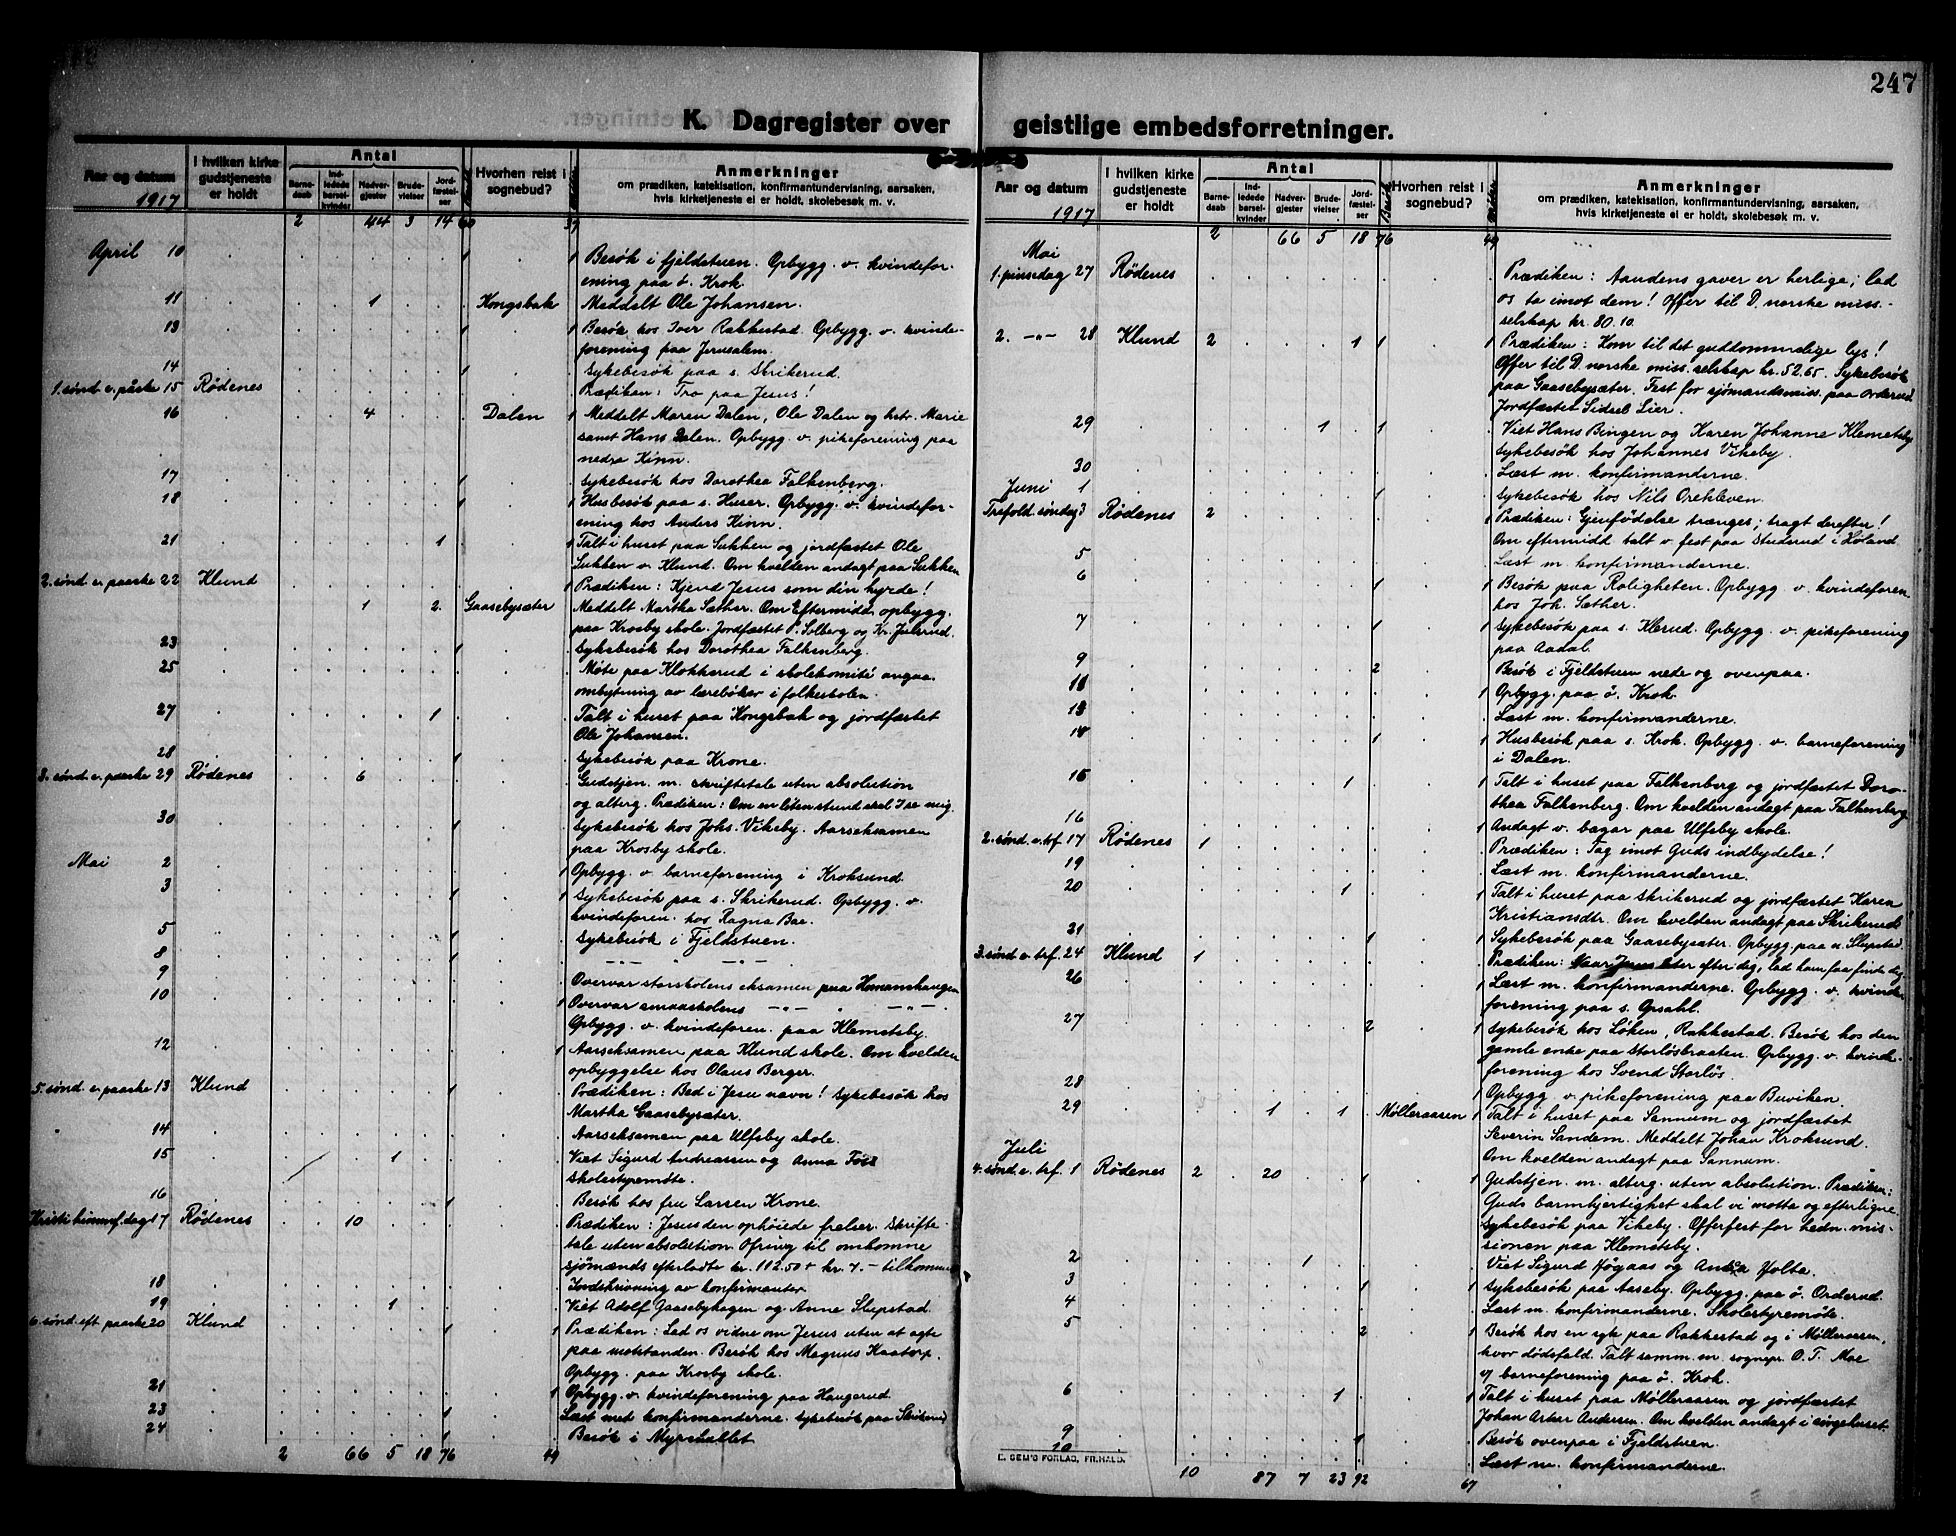 247
K. Dagregister over geistlige embedsforretninger.
Aar og datum
1917
I hvilken kirke
gudstjeneste
er holdt
Antal
Barne-
daab
Ind-
ledede
barsel-
kvinder
Nadver-
gjester
Brude-
vielser
Jord-
fæstelser
Hvorhen reist i
sognebud?
Anmerkninger
om prædiken, katekisation, konfirmantundervisning, aarsaken,
hvis kirketjeneste ei er holdt, skolebesøk m. v.
2 44 3 14 60 37
April 10 1 1 Besök i fjeldstuen. Opbygg. v. kvindefor-
ening paa ö. Krok.
11 1 Kongsbak Meddelt Ole Johansen.
13 1 1 Besök hos Iver Rakkestad. Opbygg. v. kvinde-
forening paa Jerusalem.
14 1 Sykebesök paa s. Skrikerud.
1. sönd. e. påske 15 Rødenes Prædiken: Tro paa Jesus!
16 4 Dalen 1 Meddelt Maren Dalen, Ole Dalen og hst. Marie
samt Hans Dalen. Opbygg. v. pikeforening paa
nedre Kinn.
17 1 Sykebesök hos Dorothea Falkenberg.
18 1 1 Husbesök paa s. Huser. Opbygg. v. kvindefor-
ening hos Anders Kinn.
21 1 1 Talt i huset paa Sukken og jordfæstet Ole
Sukken v. Klund. Om kvelden andagt paa Sukken
2. sönd. e. paaske 22 Klund 1 Prædiken: Kjend Jesus som din hyrde!
1 2. Gaasebysæter Meddelt Martha Sæther. Om Eftermidd. opbygg.
paa Krosby skole. Jordfæstet P. Solberg og Kr. Julsrud.
23 1 Sykebesök hos Dorothea Falkenberg.
25 Møte paa Klokkerud i skolekomité angaa.
ombytning av lærebøker i folkeskolen.
27 1 Talt i huset paa Kongsbak og jordfæstet
Ole Johansen.
28 1 Sykebesök paa Krone.
3. sönd. e. paaske 29 Rødenes 6 Gudstjen. m. skriftetale uten absolution
og alterg. Prædiken: Om en liten stund skal I se mig.
30 1 Sykebesök hos Johs. Vikeby. Aarseksamen
paa Krosby skole.
Mai 2 1 Opbygg. v. barneforening i Kroksund.
3 1 1 Sykebesök paa s. Skrikerud. Opbygg. v.
kvindeforen. hos Ragna Bae.
5 1 Sykebesök i Fjeldstuen.
8 1 —"— " —"—
9 Overvar storskolens eksamen paa Hermanshaugen
10 1 Overvar smaaskolens —"— " —"—
Opbygg. v. kvindeforen. paa Klemetsby.
12 1 Aarseksamen paa Klund skole. Om kvelden
opbyggelse hos Olaus Berger.
5. sönd. e. paaske 13 Klund 1 Prædiken: Bed i Jesu navn! Sykebesök hos
Martha Gaasebysæter.
14 Aarseksamen paa Ulfsby skole.
15 1 Viet Sigurd Andreassen og Anna
Skolestyremöte.
16 1 Besök hos fru Larsen Krone.
Kristi himmelf. dag 17 Rødenes 10 Prædiken: Jesus den ophöiede frelser. Skrifte-
tale uten absolution. Ofring til omkomne
sjömænds efterladte kr. 112.50 + kr. 7.– tilkommet
18 Indskrivning av konfirmanter.
19 1 Viet Adolf Gaasebyhagen og Anne Slupstad.
6. sönd. eft paaske 20 Klund 1 1 Prædiken: Lad os vidne om Jesus uten at agte
paa motstanden. Besök hos Magnus Kaatorp.
Opbygg. paa Krosby skole.
21 1 Opbygg. v. kvindeforening paa Haugerud.
23 1 Læst med konfirmanderne. Sykebesök paa Skikerud
24 1 Besök i Myrstallet
2 66 5 18 76 49
Aar og datum
1917
I hvilken kirke
gudstjeneste
er holdt
Antal
Barne-
daab
Ind-
ledede
barsel-
kvinder
Nadver-
gjester
Brude-
vielser
Jord-
fæstelser
Besök
Hvorhen reist i
sognebud?
Anmerkninger
om prædiken, katekisation, konfirmantundervisning, aarsaken,
hvis kirketjeneste ei er holdt, skolebesøk m. v.
2 66 5 18 76 49
Mai
1. pinsedag 27 Rødenes Prædiken: Aandens gaver er herlige; lad
os ta imot dem! Offer til D. norske miss.-
selskap kr. 80.10.
2. —"— 28 Klund 2 1 1 1 Prædiken: Kom til det guddommelige lys!
Offer til D. norske miss. selskap kr. 52.65. Sykebesök
paa Gaasebysæter. Fest for sjömandsmiss. paa Orderud.
Jordfæstet Sidsel Lier.
29 1 1 Viet Hans Bingen og Karen Johanne Klemetsby
Sykebesök hos Johannes Vikeby.
30 Læst m. konfirmanderne.
Juni 1 1 Sykebesök hos Nils Orekleven.
Trefold. söndag 3 Rødenes 2 1 Prædiken: Gjenfödelse trænges; tragt derefter!
Om eftermidd. talt v. fest paa Studerud i Höland.
5 Læst m. konfirmanderne.
6 1 1 Besök paa Roligheten. Opbygg. v. kvindeforen
hos Joh. Sæther.
7 1 1 Sykebesök paa s. Klerud. Opbygg. v. pikeforening
paa Aadal.
9 2 Besök i Fjeldstuen nede og ovenpaa.
11 1 Opbygg. paa ö. Krok.
13 Læst m. konfirmanderne.
14 1 1 Husbesök paa s. Krok. Opbygg. v. barneforening
i Dalen.
15 1 1 Talt i huset paa Falkenberg og jordfæstet Doro-
thea Falkenberg. Om kvelden andagt paa Falkenberg
16 1 Andagt v. bazar paa Ulfsby skole.
2. sönd. e. trf. 17 Rødenes 1 Prædiken: Tag imot Guds indbydelse!
19 Læst m. konfirmanderne.
20 1 1 Talt i huset paa Skrikerud og jordfæstet Karen
Kristiansdtr. Om kvelden andagt paa Skrikerud.
21 1 1 Sykebesök paa Gaasebysæter. Opbygg. paa n. Slupstad.
3. sönd. e. trf. 24 Klund 1 Prædiken: Naar Jesus leter efter dig, lad ham faa finde dig.
26 1 Læst m. konfirmanderne. Opbygg. v. kvinde-
forening paa s. Opsahl.
27 2 1 Sykebesök hos Löken, Rakkestad. Besök hos den
gamle enke paa Storlösbraaten. Opbygg. v. kvinde-
forening hos Svend Storlös.
28 1 Opbygg. v. pikeforening paa Buviken.
29 1 1 Mølleraasen 1 Talt i huset paa Sannum og jordfæstet
Severin Sandem. Meddelt Johan Kroksund.
Om kvelden andagt paa Sannum.
Juli
4. sönd. e. trf. 1 Rødenes 2 20 1 1 Gudstjen. m. alterg. uten absolution. Prædiken:
Guds barmhjertighet skal vi motta og efterligne.
Sykebesök paa Vikeby. Offerfest for Hedn. mis-
sionen paa Klemetsby.
2 1 Viet Sigurd Högaas og Andrea Holta.
3 1 1 Sykebesök paa Aaseby. Opbygg. paa ö. Orderud.
4 Læst m. konfirmanderne. Skolestyremöte.
5 2 1 Besök hos en syk paa Rakkestad og i Mølleraasen,
hvor dödsfald. Talt samm. m. sognepr. O. T. Moe
v/ barneforening paa ö. Krok.
6 1 1 Talt i huset paa Mølleraasen og jordfæstet
Johan Asker Andersen. Om kvelden andagt i sörgehuset.
9 1 Besök ovenpaa i Fjeldstuen.
10 Læst m. konfirmanderne.
E. SEM'S FORLAG, FR.HALD.
10 87 7 23 92 67